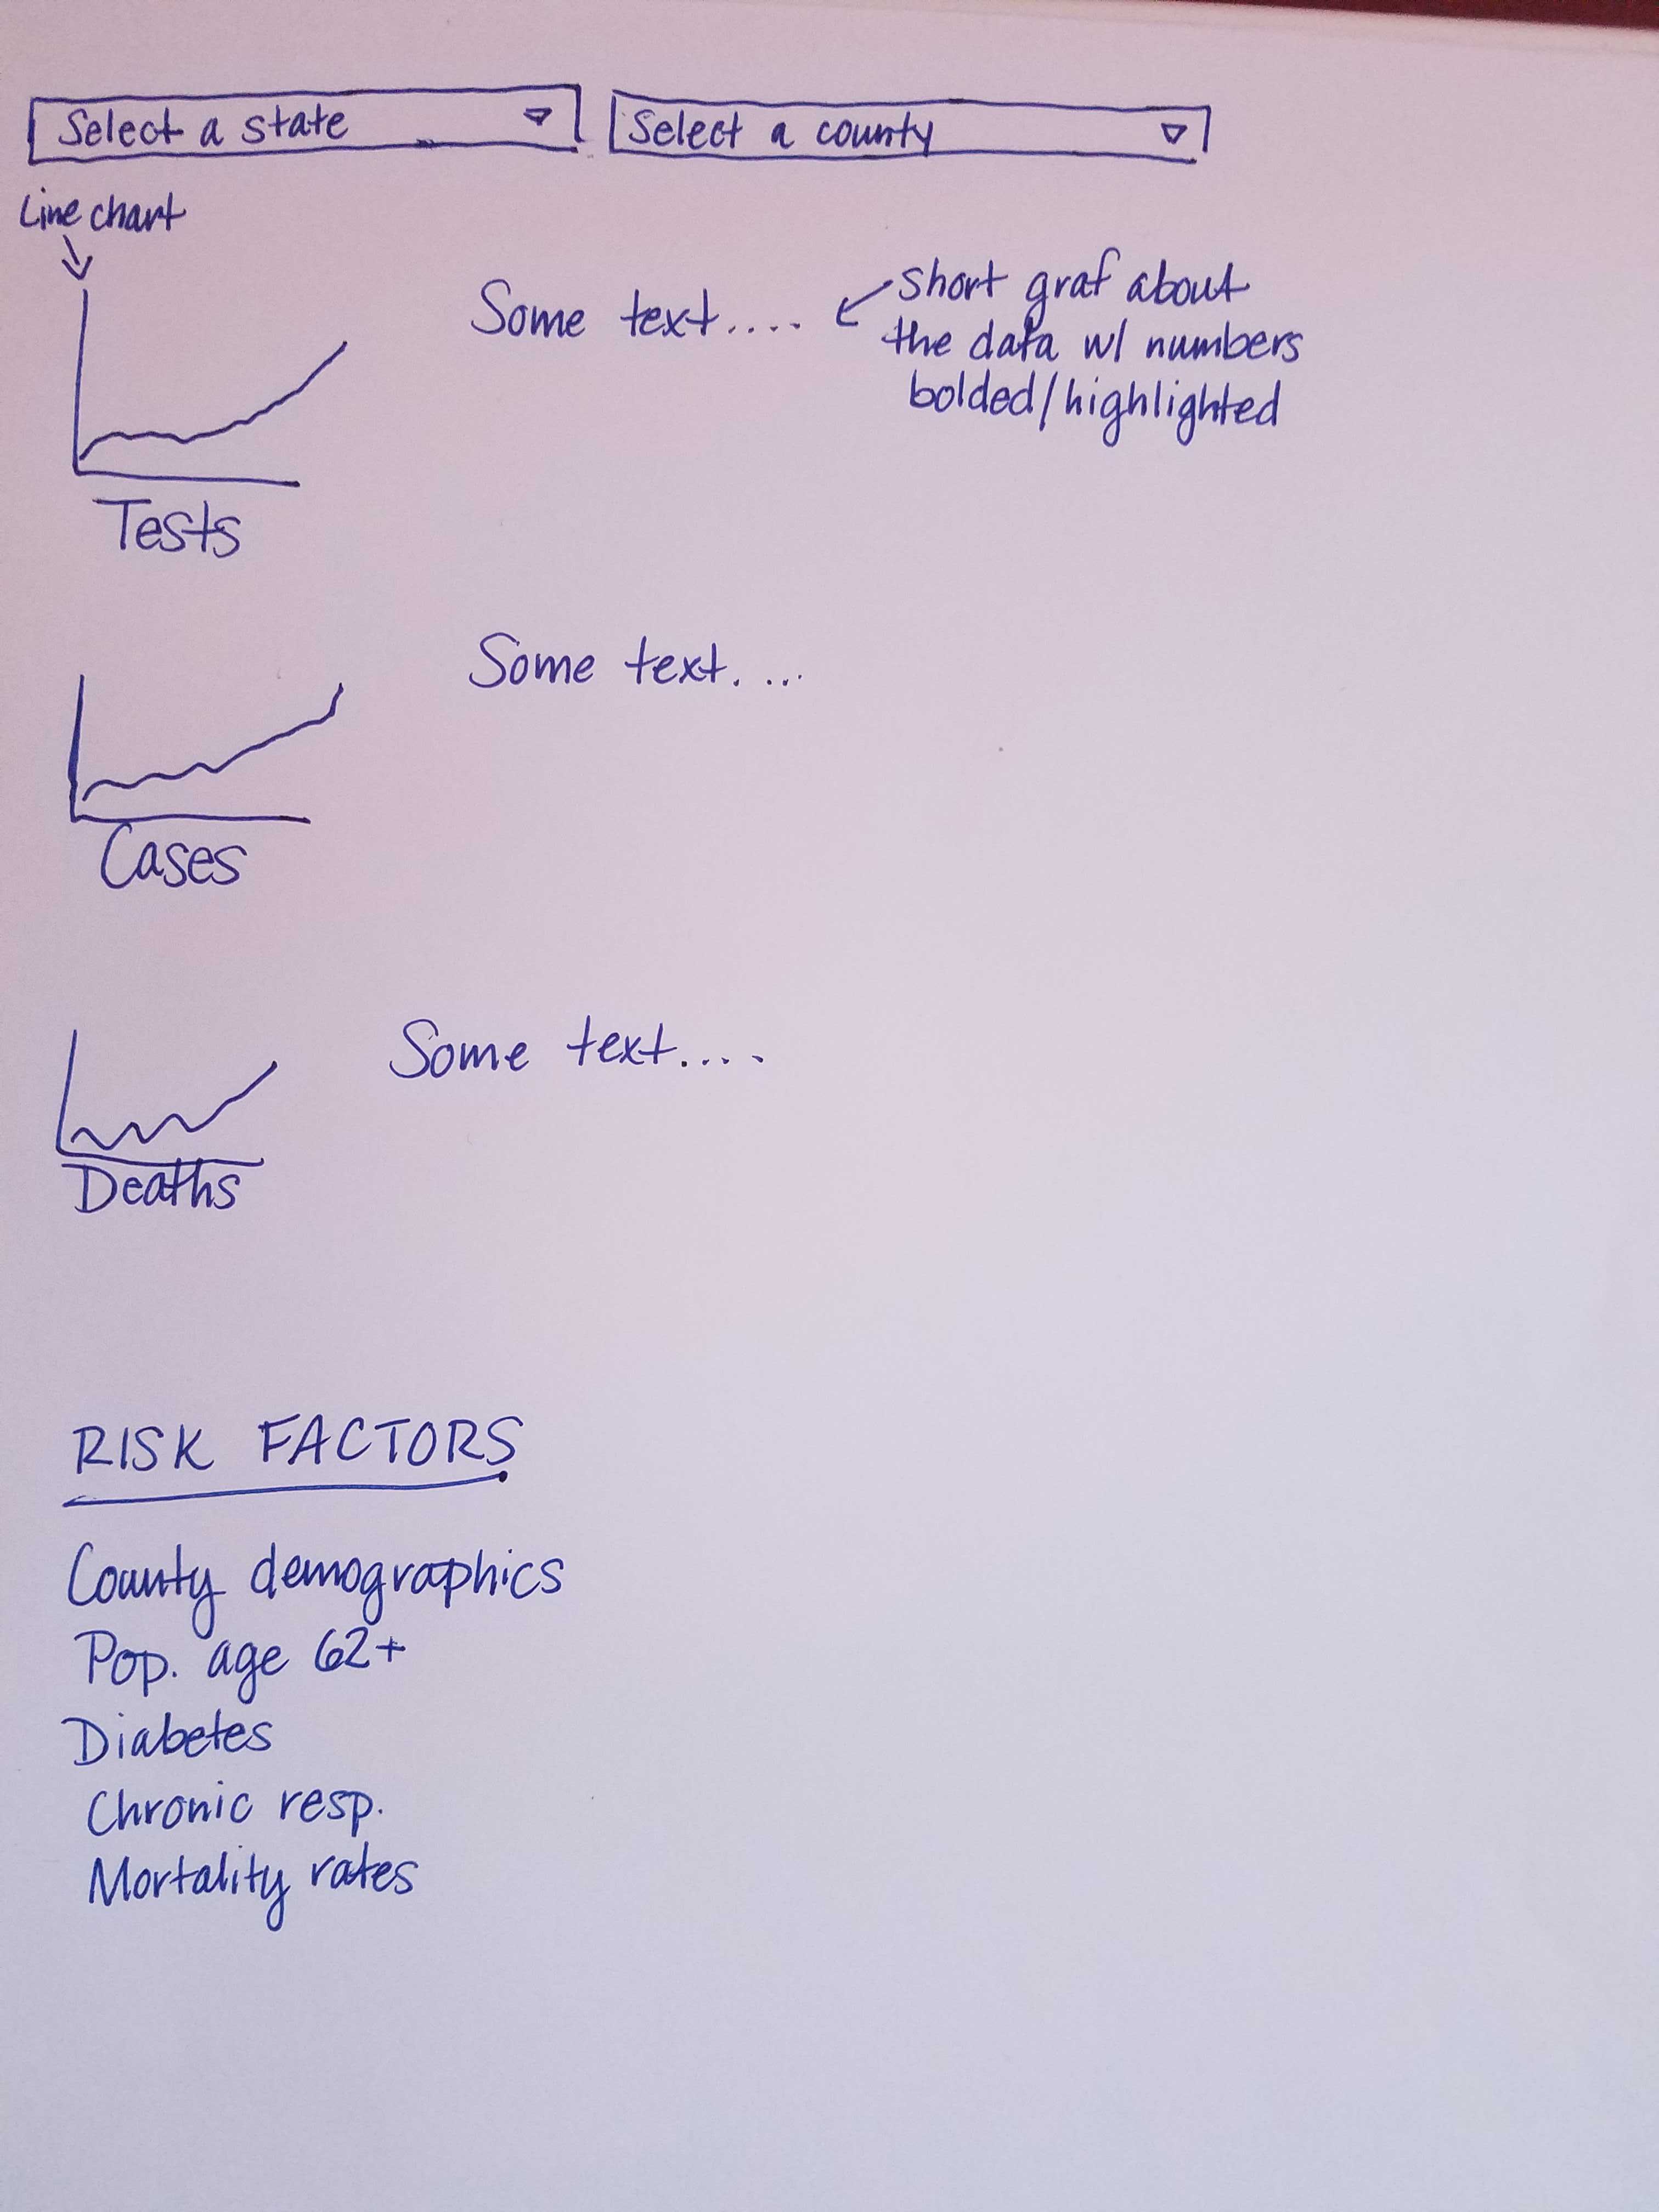 Select a state
Select a county
Line chart
Some text....
short graf about
the data w/ numbers
bolded/highlighted
Tests
Some text....
Cases
Some text....
Deaths
RISK FACTORS
County demographics
Pop. age 62+
Diabetes
Chronic resp.
Mortality rates